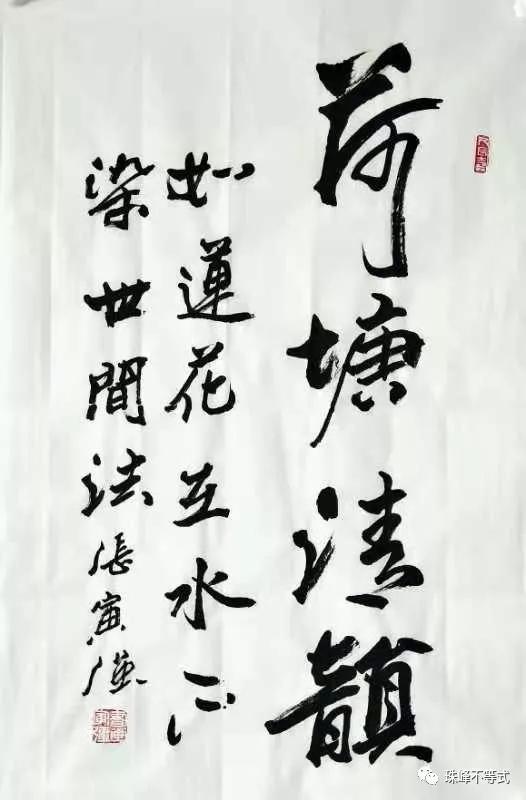 荷塘清韻
如蓮花在水不
染世間法 張寅
珠峰不等式